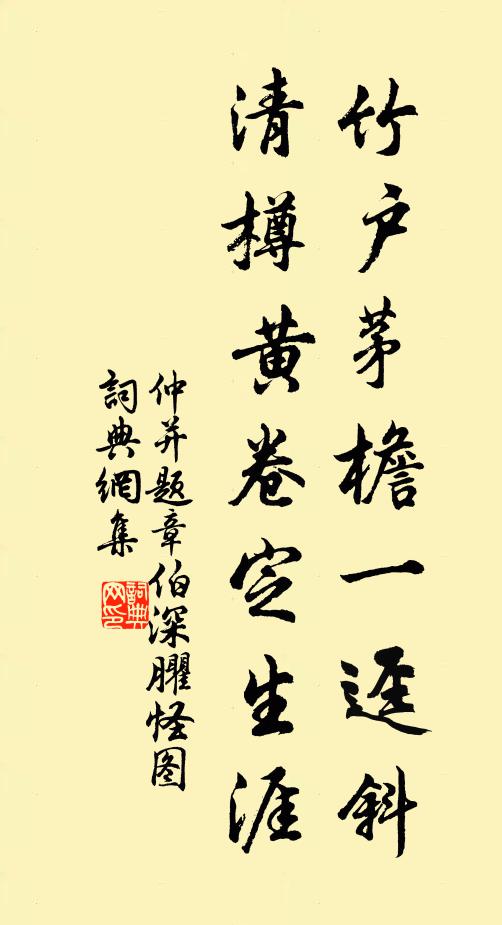 竹户茅檐一迳斜
清樽黄卷定生涯
仲并题章伯深臞怪图
詞典網集
詞典网印